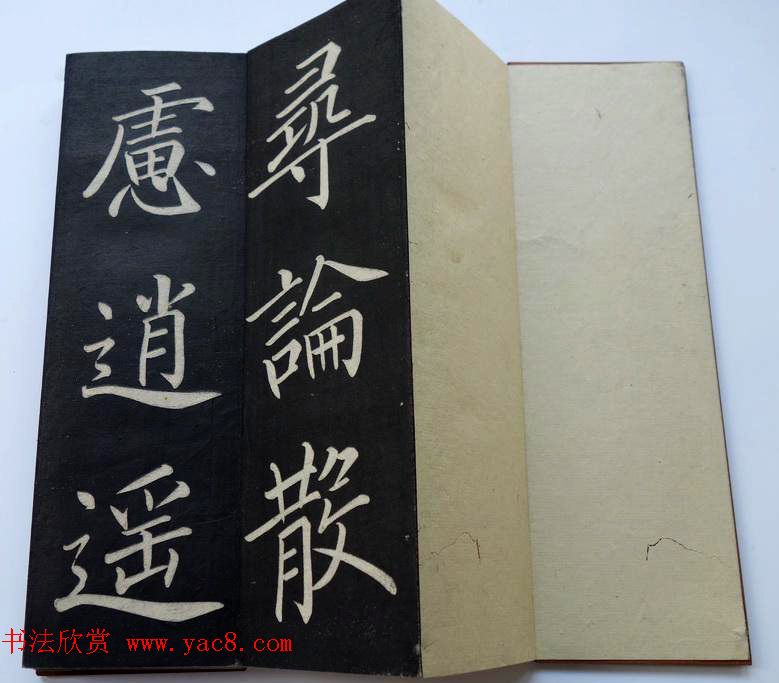 尋論散
慮逍遥
书法欣赏 www.yac8.com